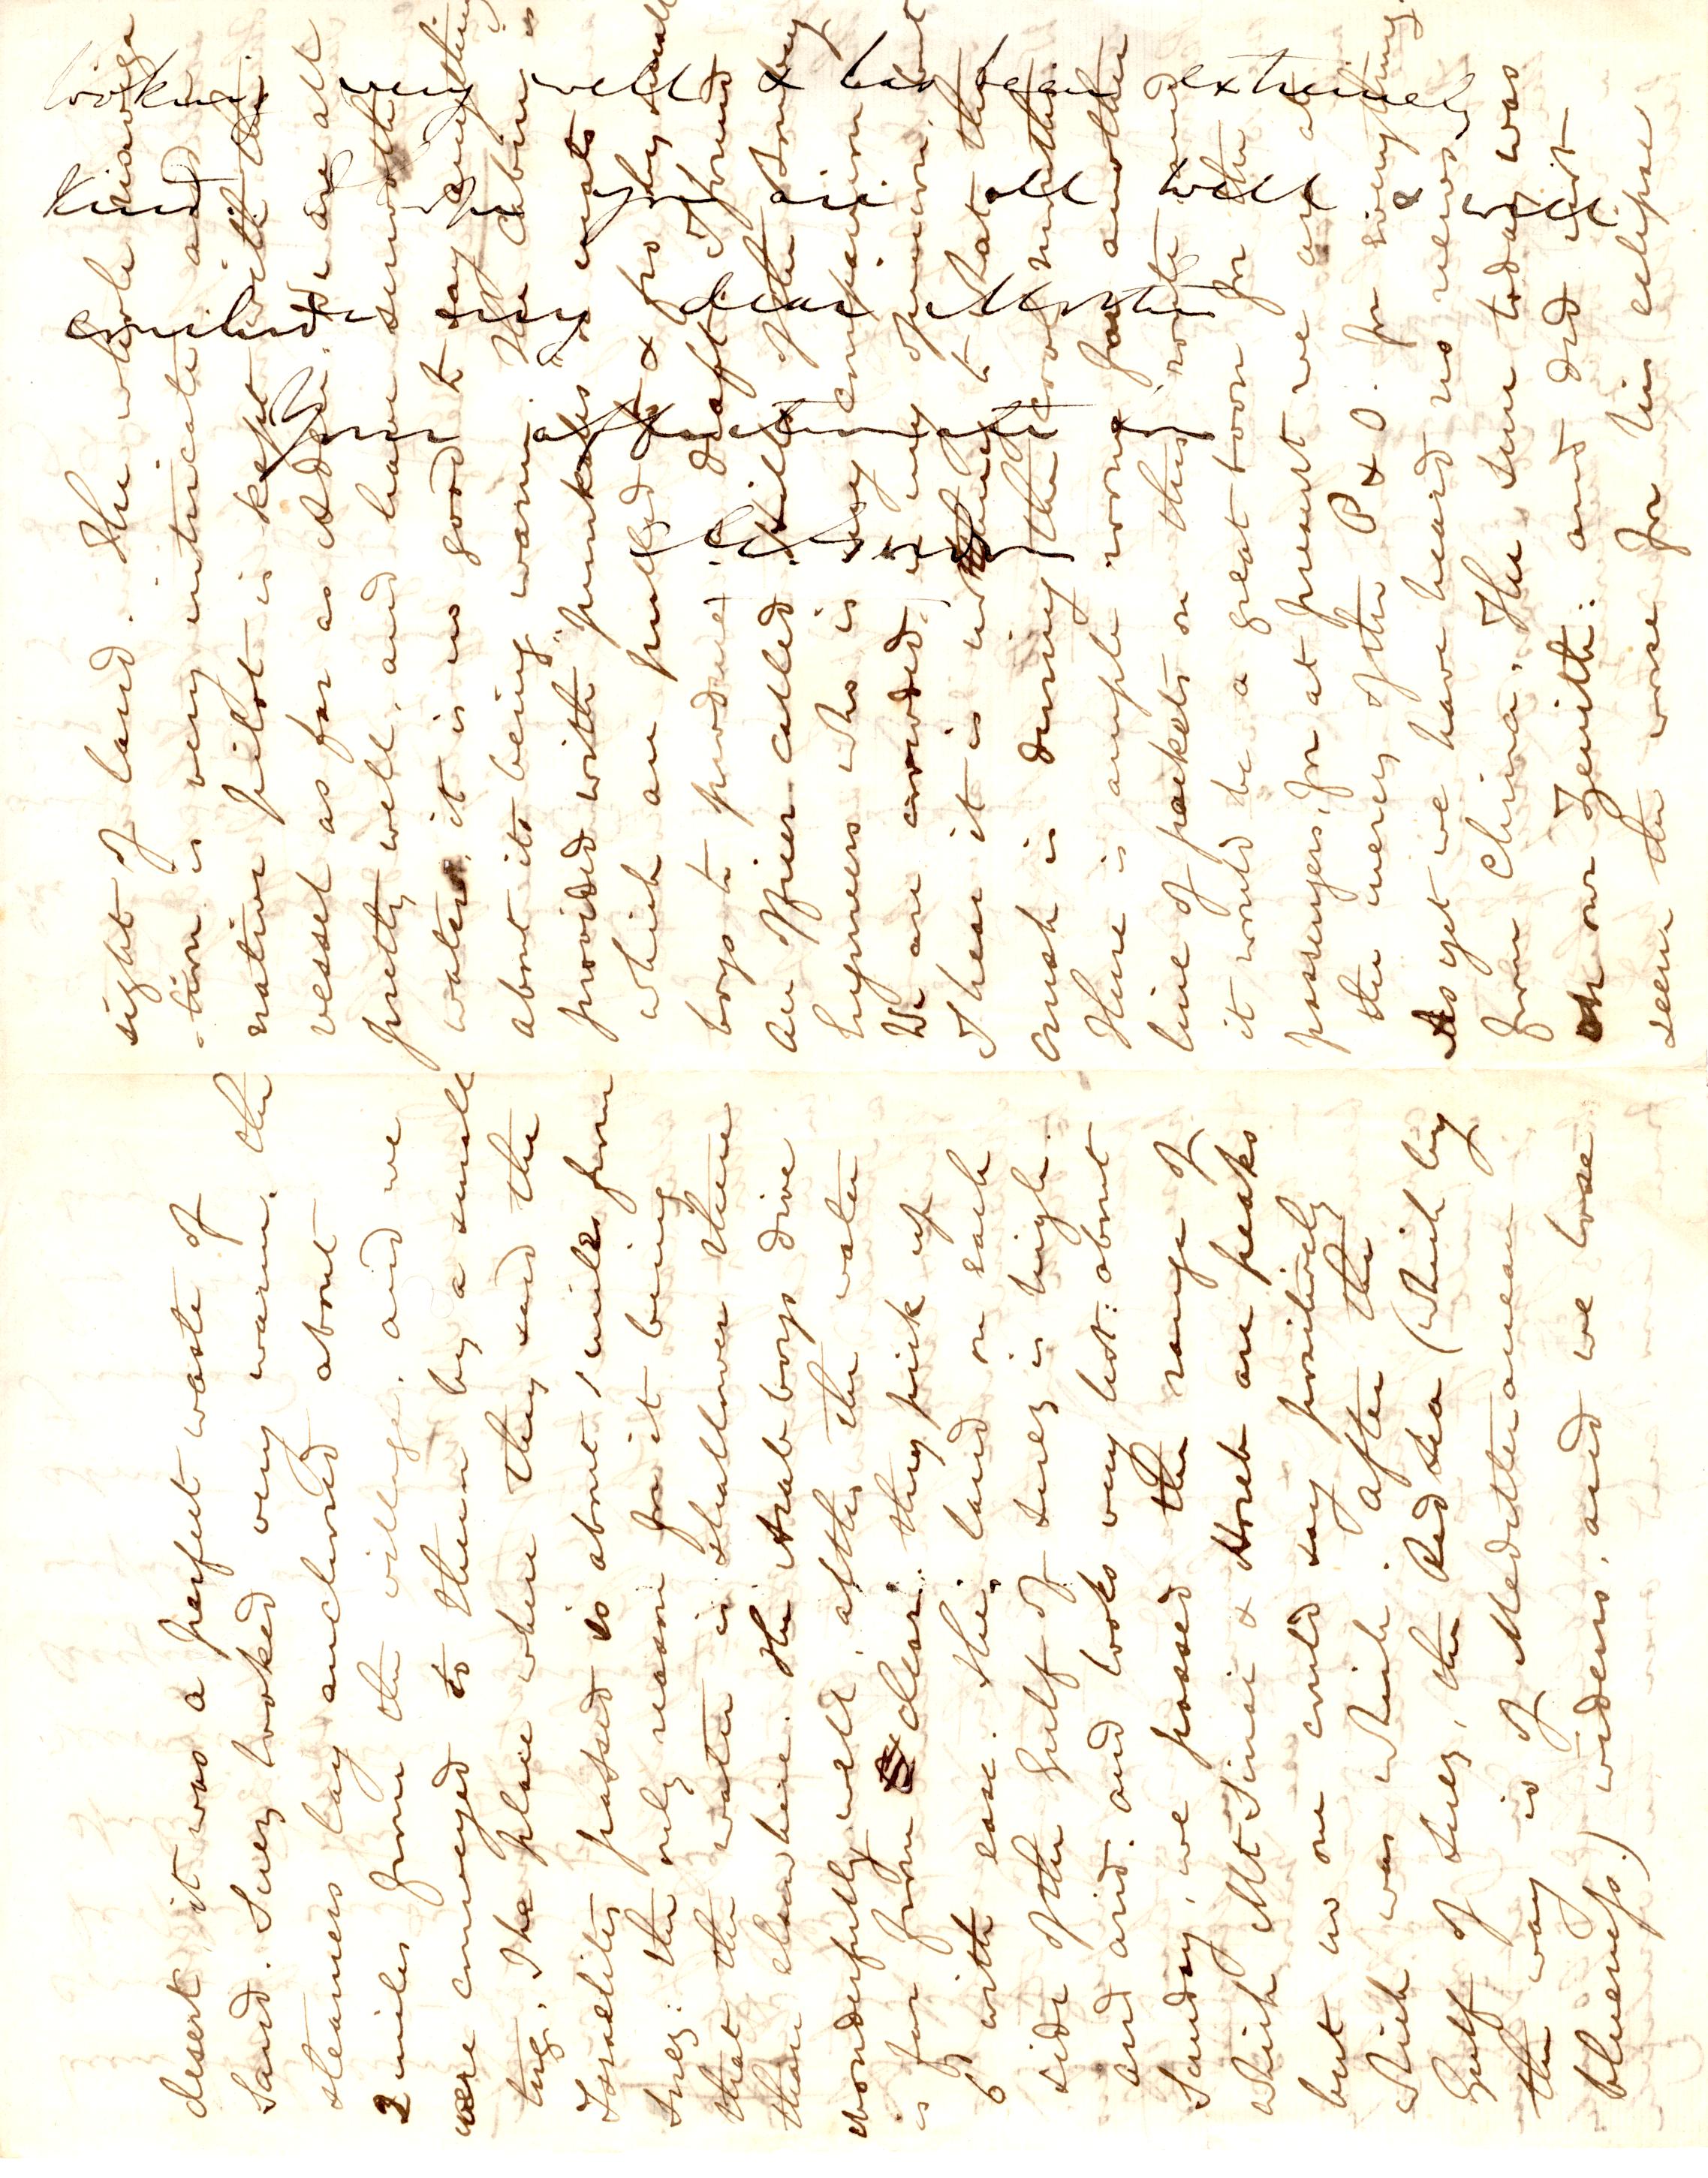 desert, it was a perfect waste of
sand. Suez looked very warm, the
steamers lay anchored about
2 miles from the village, and we
were conveyed to them by a small
tug. The place where they said the
Israelites passed is about 1 mile from
Suez: the only reason for it being
that the water is shallower there
than elsewhere. The Arab boys dive
wonderfully well, altho the water
is far from clear: they pick up
6d with ease. The land on each
side of the Gulf of Suez is high
and arid. and looks very hot: about
Sunday, we passed the range of
which Mt Sinai & Horeb are peaks
but no one could say positively
which was which. After the
Gulf of Suez, the Red Sea (which by
the way is of Mediterranean
blueness.) widens, and we lose
sight of land. The whole naviga
-tion is very intricate and a
native pilot is kept with the
vessel as far as Aden. We are all
pretty well, and have smooth
water, it is no good to say anything
about its being warm. The cabin is
provided with "punkahs" or
which are pulled to & fro by small
boys to produce a draft. I found
an Officer called Hill of the Bombay
Engineers who is my companion
We are crowded, in my opinion, but
I hear it is nothing to what the
crush is during the cool months
There is ample room for another
line of packets on this route and
it would be a great boon for the
passengers, for at present we are at
the mercy of the P & O. for everything.
As yet we have heard no news
from China. The sun today was
in our Zenith: and did not
seem the worse for his eclipse
looking very well & has been extremely
kind. I hope you are all well & will
conclude my dear Mother
Your affectionate son